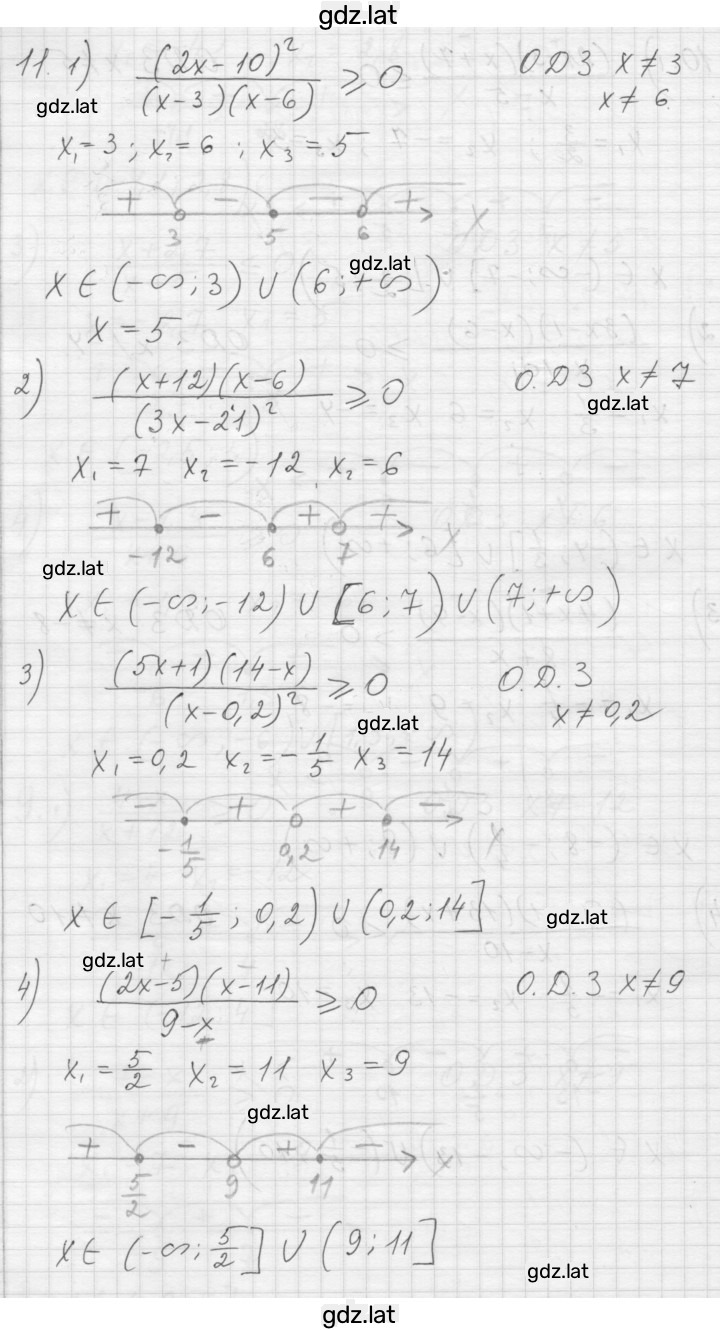 gdz.lat
11. 1) (2x-10)² / (x-3)(x-6) ⩾ 0 О.Д.З x ≠ 3
gdz.lat x ≠ 6
x₁=3 ; x₂=6 ; x₃=5
+ - - + x
3 5 6
gdz.lat
x ∈ (-∞; 3) ∪ (6; +∞)
x = 5.
2) (x+12)(x-6) / (3x-21)² ⩾ 0 О.Д.З x ≠ 7
gdz.lat
x₁=7 x₂=-12 x₂=6
+ - + + x
-12 6 7
gdz.lat
x ∈ (-∞;-12) ∪ [6;7) ∪ (7;+∞)
3) (5x+1)(14-x) / (x-0,2)² ⩾ 0 О.Д.З
gdz.lat x ≠ 0,2
x₁=0,2 x₂=-1/5 x₃=14
- + + -
-1/5 0,2 14 x
x ∈ [-1/5; 0,2) ∪ (0,2;14] gdz.lat
gdz.lat
4) (2x-5)(x-11) / 9-x ⩾ 0 О.Д.З x ≠ 9
x₁ = 5/2 x₂ = 11 x₃ = 9
gdz.lat
+ - + - x
5/2 9 11
x ∈ (-∞; 5/2] ∪ (9;11]
gdz.lat
gdz.lat